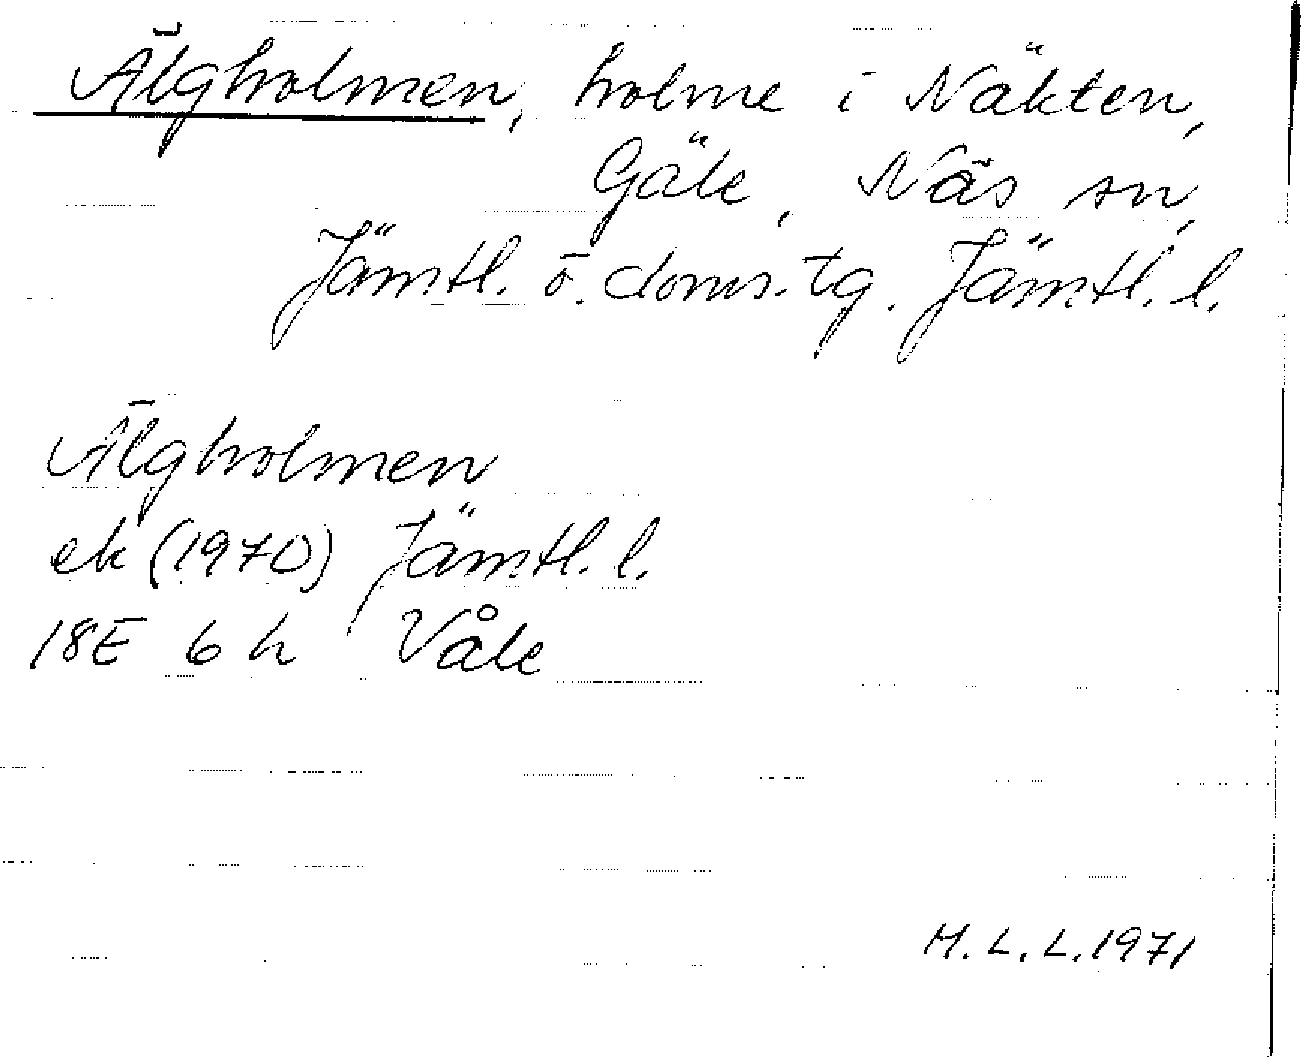 Älgholmen, holme i Näkten,
Gäle, Näs sn,
Jämtl. ö. doms. tg. Jämtl. l.
Älgholmen
ek (1970) Jämtl. l.
18E 6 h Våle
M. L. L. 1971